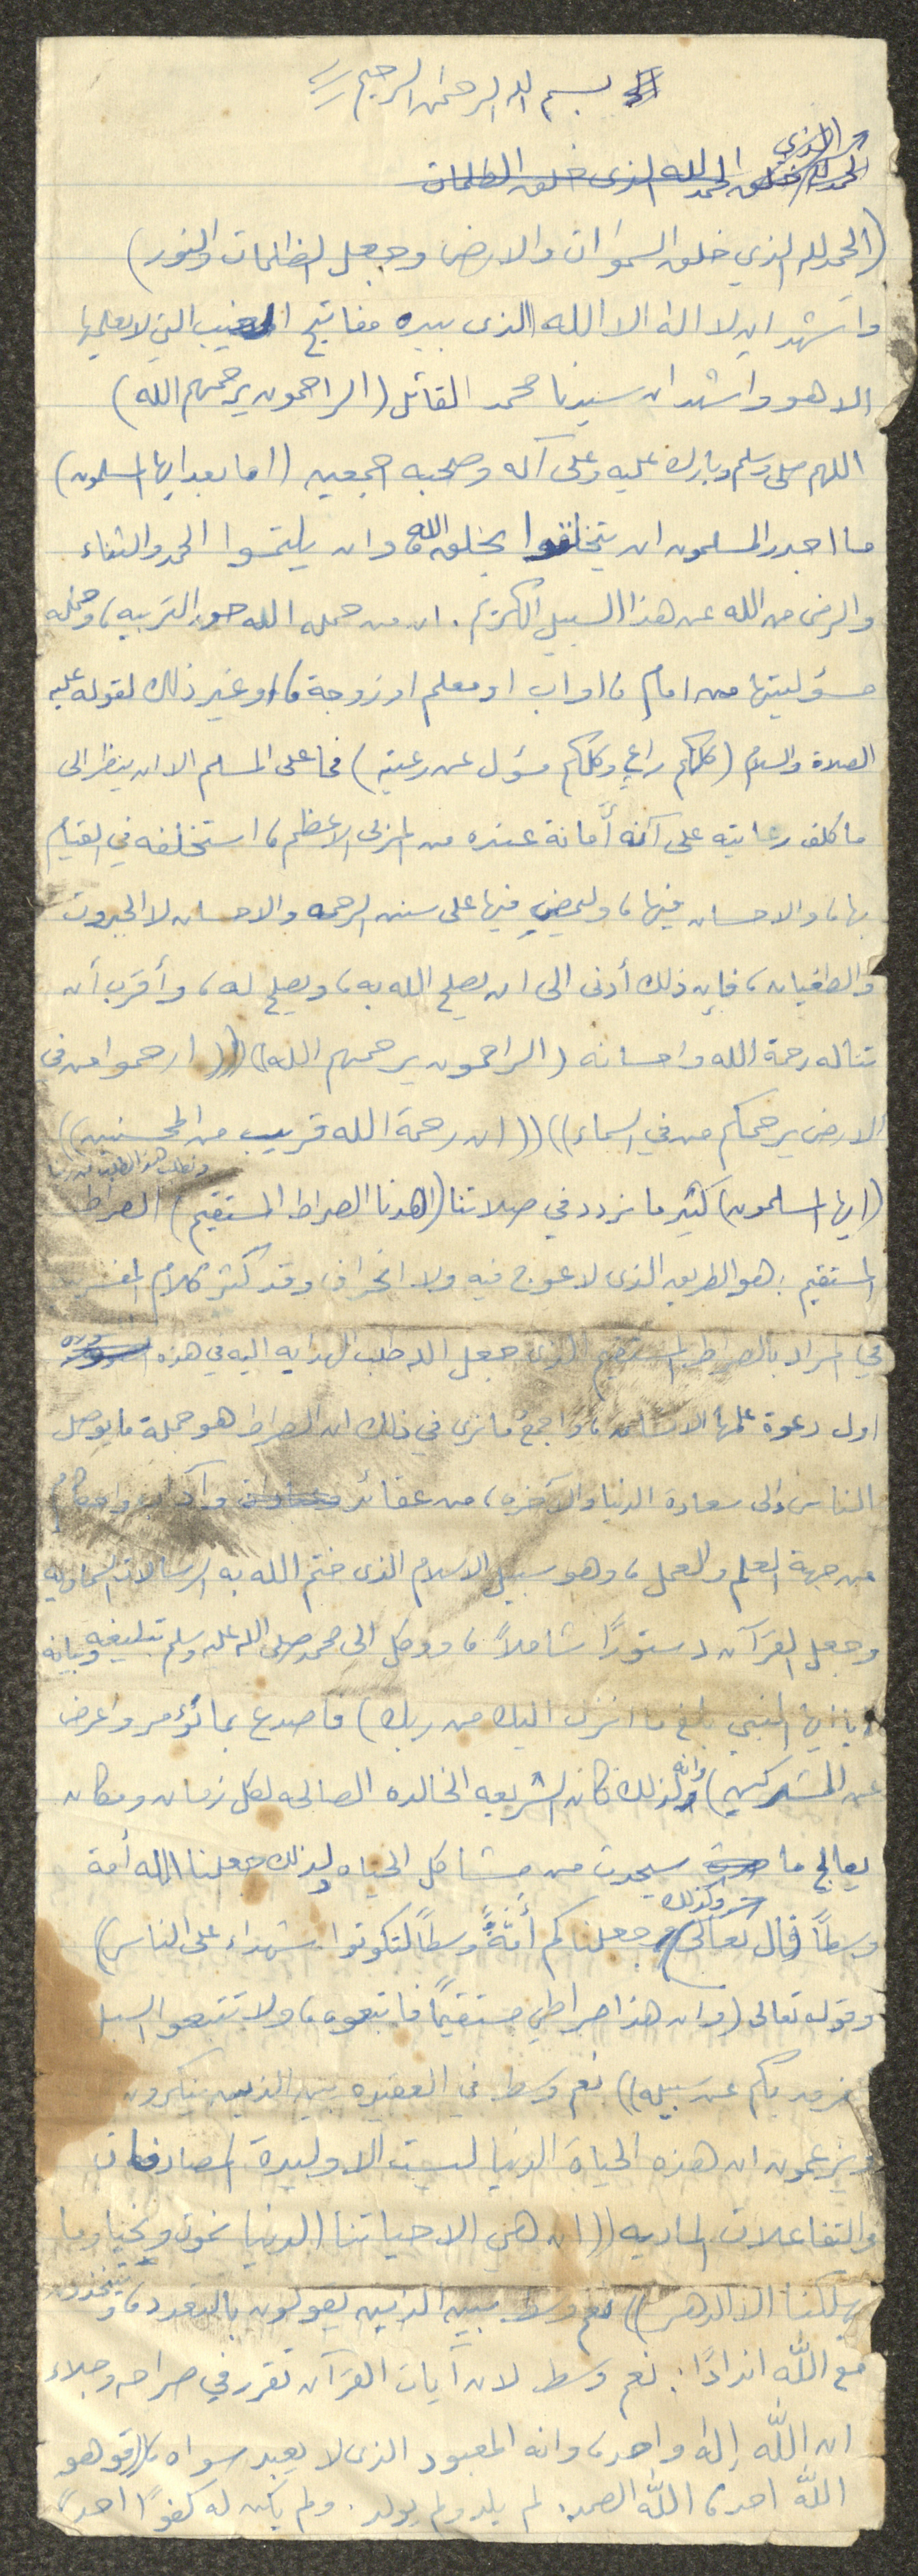 بسم الله الرحمن الرحيم
الحمد لله الذي خلق الحمد لله الذي خلق الظلمات
(الحمد لله الذي خلق السموات والارض وجعل الظلمات والنور)
واشهد ان لا اله الا الله الذى بيده مفاتيح الغيب التي لا يعلمها
الا هو واشهد ان سيدنا محمد القائل (الراحمون يرحمهم الله)
اللهم صلى وسلم وبارك عليه وعلى آله وصحبه اجمعين (اما بعد ايها المسلمون)
ما اجدر المسلمون ان يتخلقوا بخلق الله، وان يلتمسوا الحمد والثناء
والرضى من الله عن هذا السبيل الكريم. ان من حمله الله حق التربيه، وحمله
مسؤليتها من امام، او اب او معلم او زوجة، او غير ذلك لقوله عليه
الصلاة والسلام (كلكم راعي وكلكم مسؤل عن رعيته) فما على المسلم الا ان ينظر الى
ما كلف رعايته على آنه أمانة عنده من المولى الاعظم، استخلفه في القيام
بها، والاحسان فيها، وليمضي فيها على سنن الرحمه والاحسان لا الجبروت
والطغيان، فإن ذلك أدنى الى ان يصلح الله به، ويصلح له، وأقرب أن
تناله رحمة الله واحسانه (الراحمون يرحمهم الله) ((ارحموا من فى
الارض يرحمكم من في السماء)) ((ان رحمة الله قريب من المحسنين))
(ايها المسلمون) كثير ما نردد في صلاتنا ونطلب هذا الطلب من ربنا (اهدنا الصراط المستقيم) الصراط
المستقيم: هو الطريق الذى لا عوج فيه ولا انحراف وقد كثر كلام المفسرين
في المراد بالصراط المستقيم الذى جعل الله طلب الهدايه اليه في هذه السوره
اول دعوة علمها الانسان، واجمع ما نرى في ذلك ان الصراط هو جملة ما يوصل
الناس الى سعادة الدنيا والآخره، من عقائد وآداب واحكام
من جهة العلم والعمل، وهو سبيل الاسلام الذى ختم الله به الرسالات السماويه
وجعل القرآن دستورًا شاملاً، ووكل الى محمد صلى الله عليه وسلم تبليغه وبيانه
(يا ايها النبي بلغ ما انزل اليك من ربك) فاصدع بما تؤمر واعرض
عن المشركين) وانه لذلك كان الشريعه الخالده الصالحه لكل زمان ومكان
يعالج ما سيحدث من مشاكل الحياه ولذلك جعلنا الله أمة
وسطًا (قال تعالى) وكذلك جعلناكم أمّةً وسطًا لتكونوا شهداء على الناس)
وقوله تعالى (وان هذا صراطي مستقيمًا فاتبعوه، ولا تتبعوا السبل
فتفرق بكم عن سبيله)) نعم وسط في العقيده بين الذين ينكرون
ويزعمون ان هذه الحياة الدنيا ليست الا وليدة المصادفات
والتفاعلات الماديه ((ان هي الا حياتنا الدنيا نموت ونحيا وما
يهلكنا الا الدهر)) نعم وسط بين الذين يقولون بالتعدد، ويتخذون
مع الله اندادًا: نعم وسط لان آيات القرآن تقرر في صراحه وجلاء
ان الله إله واحد، وانه المعبود الذى لا يعبد سواه، ((قو هو
الله احد، الله الصمد. لم يلد ولم يولد. ولم يكن له كفوًا احد))